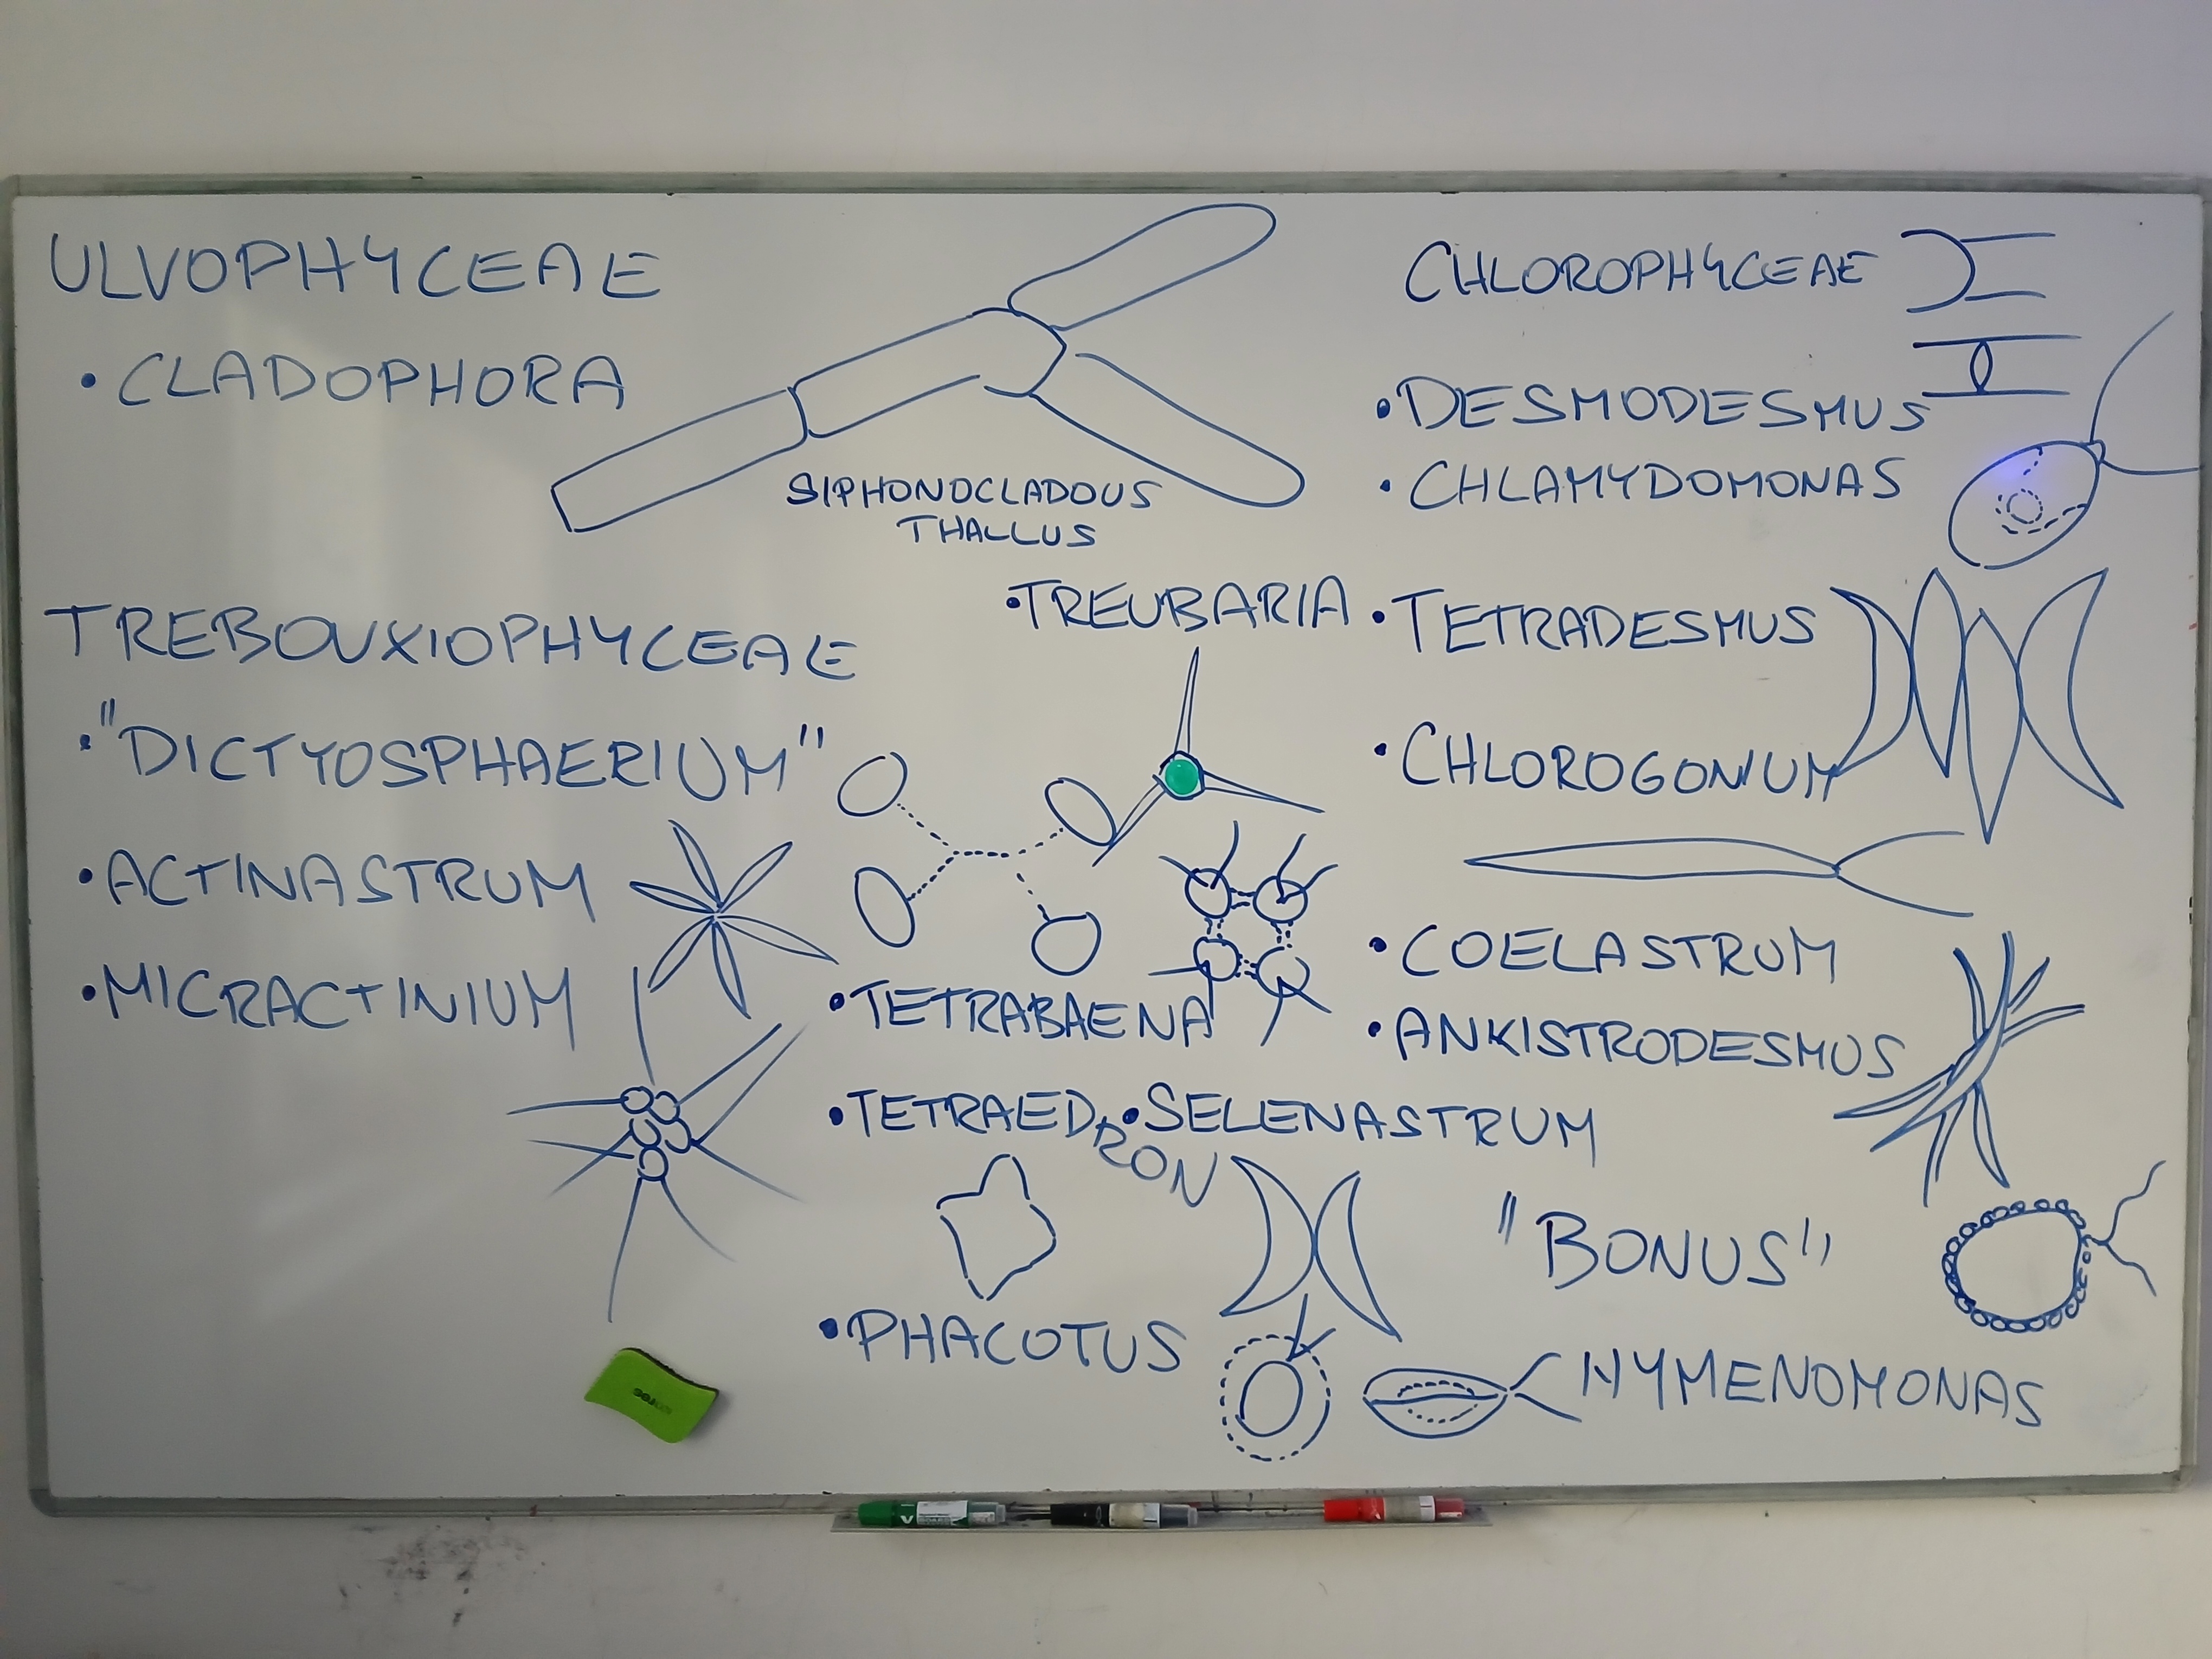 ULVOPHYCEAE
• CLADOPHORA
SIPHONOCLADOUS
THALLUS
TREBOUXIOPHYCEAE
• "DICTYOSPHAERIUM"
• ACTINASTRUM
• MICRACTINIUM
CHLOROPHYCEAE
• DESMODESMUS
• CHLAMYDOMONAS
• TREUBARIA
• TETRADESMUS
• CHLOROGONIUM
• COELASTRUM
• ANKISTRODESMUS
• TETRABAENA
• TETRAEDRON
• SELENASTRUM
• PHACOTUS
"BONUS"
HYMENOMONAS